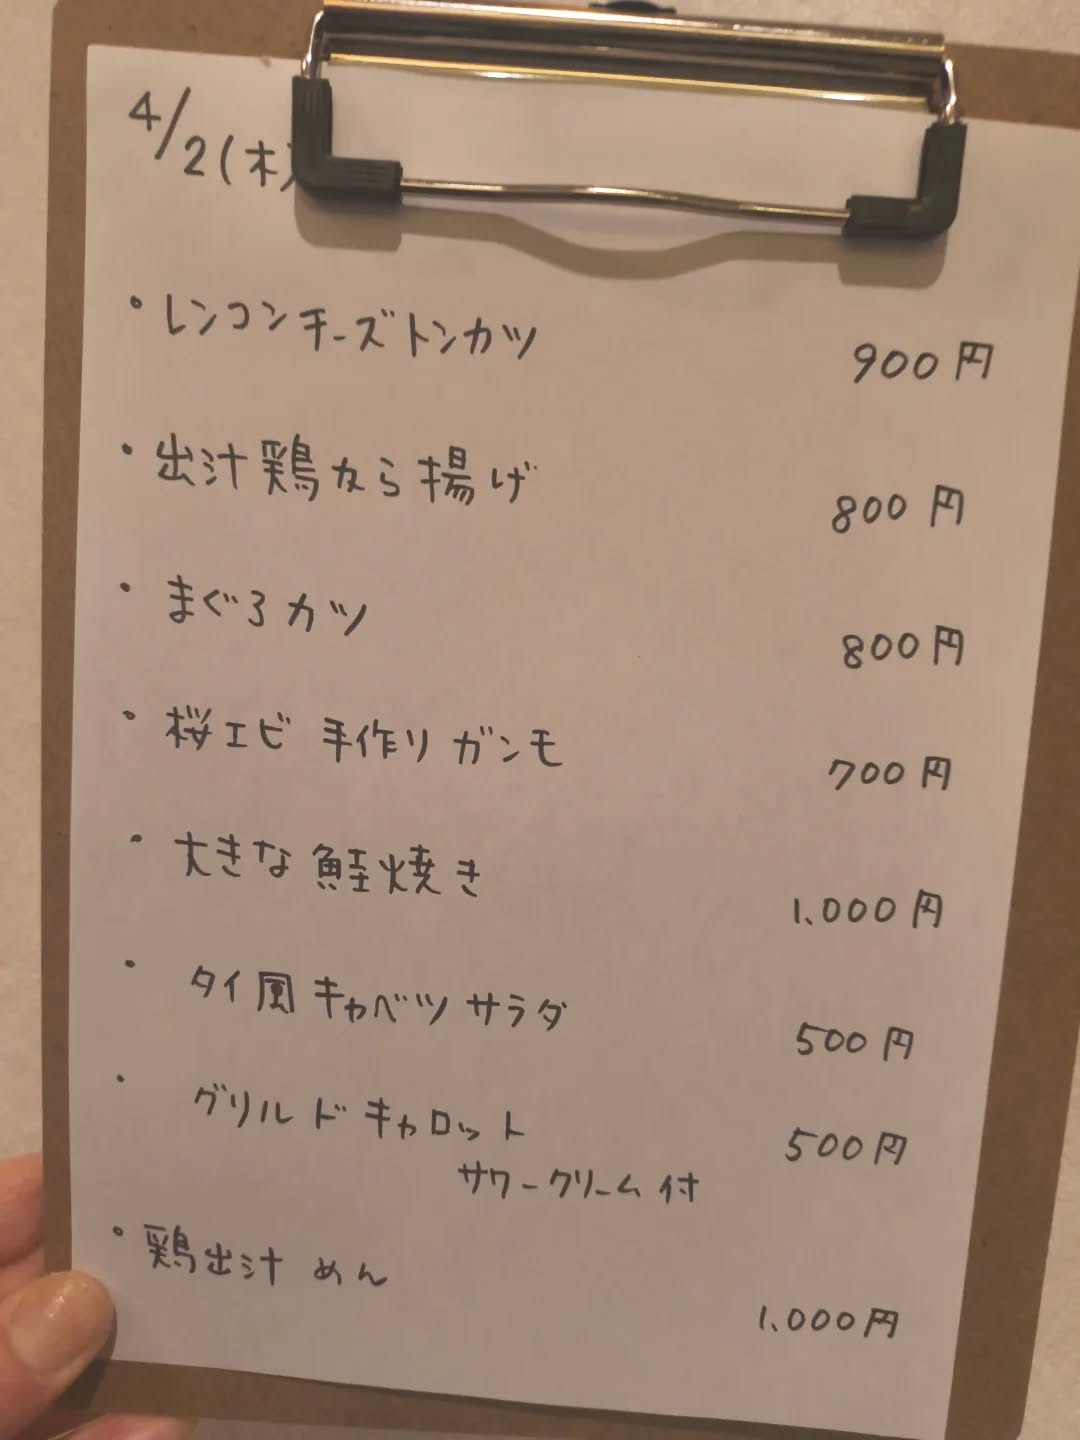 4/2(木)
・レンコンチーズトンカツ 900円
・出汁鶏から揚げ 800円
・まぐろカツ 800円
・桜エビ 手作り ガンモ 700円
・大きな 鮭焼き 1.000円
・タイ風 キャベツ サラダ 500円
・グリルド キャロット 500円
サワークリーム 付
・鶏出汁 めん 1.000円